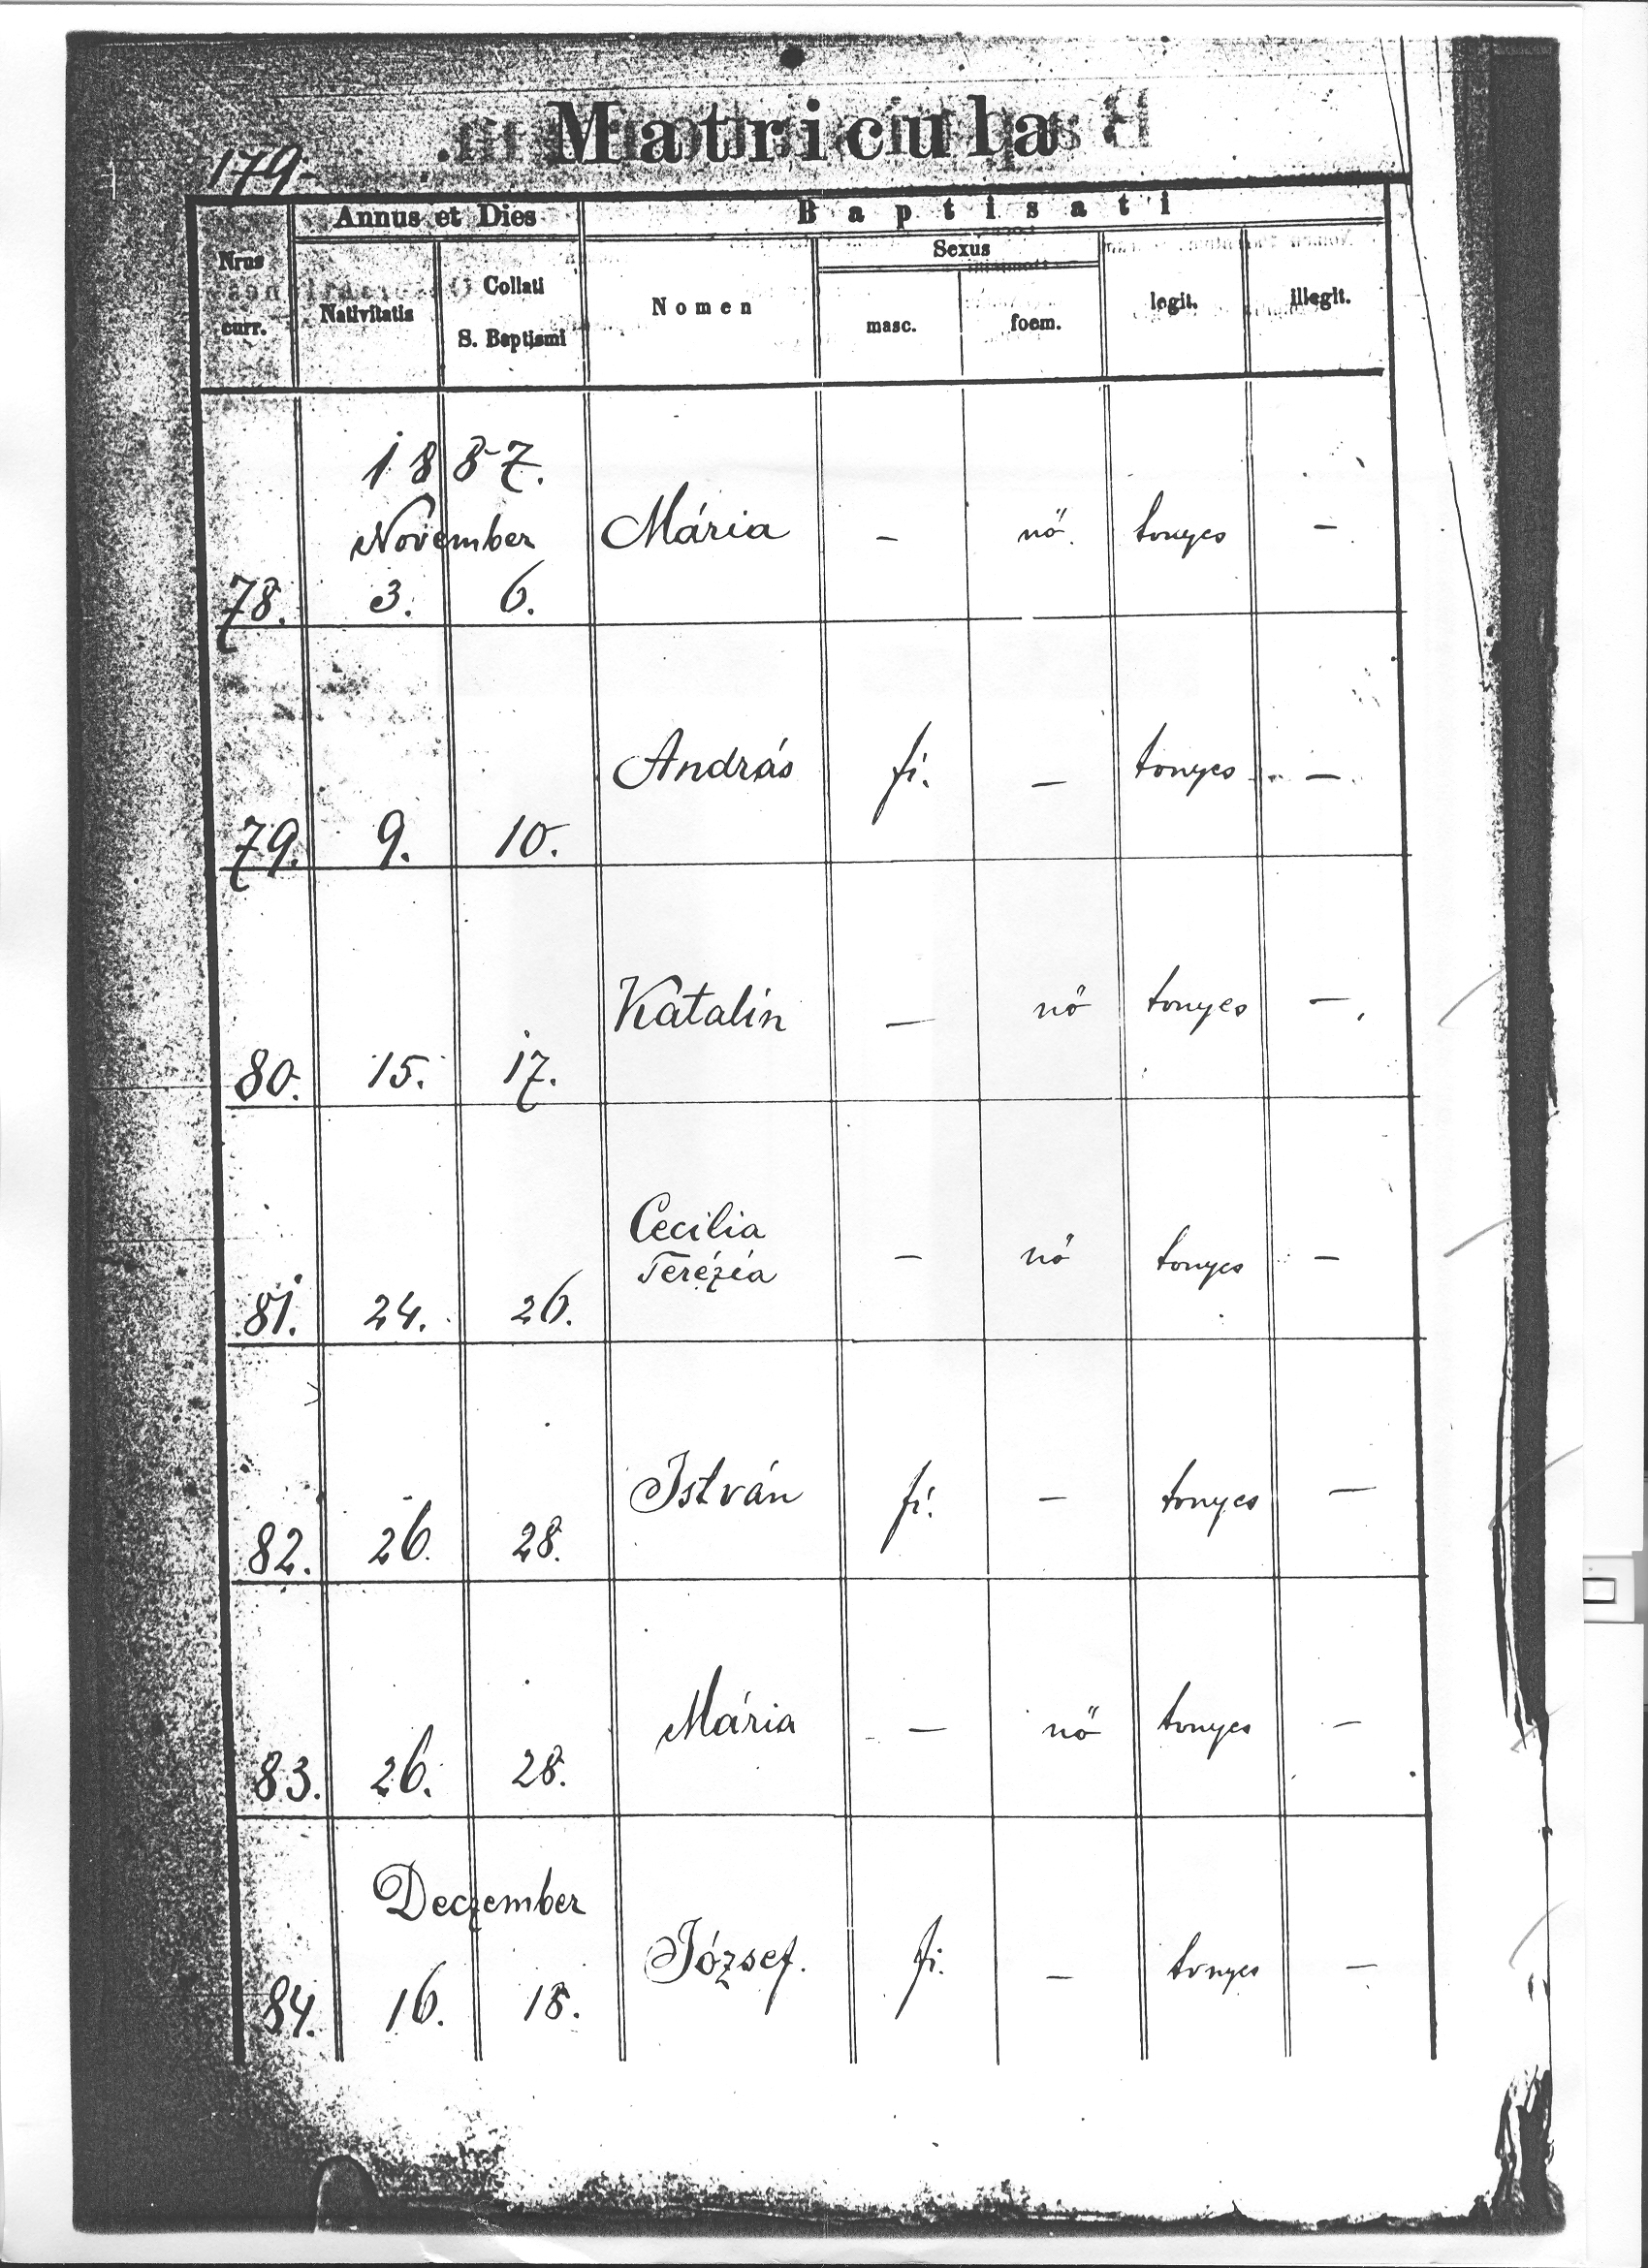 Matricula
179.
Annus et Dies
Baptisati
Nrus
curr.
Nativitatis
Collati
S. Baptismi
Nomen
Sexus
masc.
foem.
legit.
illegit.
1887.
November
78. 3. 6. Mária – nő. tvnyes –
79. 9. 10. András fi. – tvnyes –
80. 15. 17. Katalin – nő tvnyes –
81. 24. 26. Cecilia
Terézia – nő tvnyes –
82. 26. 28. István fi. – tvnyes –
83. 26. 28. Mária – nő tvnyes –
Deczember
84. 16. 18. József. fi. – tvnyes –